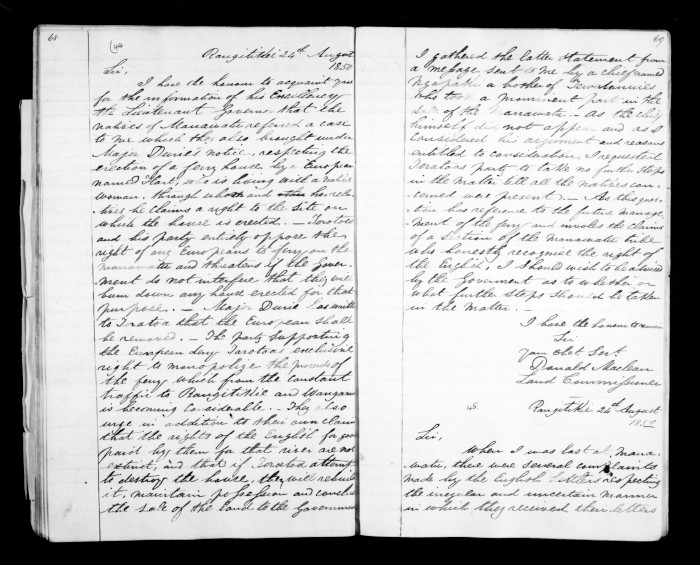 68
44
Rangitikei 24th August
1850
Sir,
I have the honour to acquaint you
for the information of his Excellency
the Lieutenant Governor that the
natives of Manawatu refered a case
to me which they also brought under
Major Duries notice, respecting the
erection of a ferry house by a European
named Hare, who is living with a native
woman, through whom and her rela-
tives he claims a right to the site on
which the house is erected. — Taratoa
and his party entirely oppose the
right of any Europeans to ferry on the
manawatu and threatens if the Govern-
ment do not interfere that they will
burn down any house erected for that
purpose. — Major Durie has written
to Taratoa that the European shall
be removed. — The party supporting
the European deny Taratoas exclusive
right to monopolize the proceeds of
the ferry which from the constant
traffic to Rangitikei and Wanganui
is becoming considerable. They also
urge in addition to their own claim
that the rights of the English for goods
paid by them for that river are not
extinct, and that if Taratoa attempt
to destroy the house, they will rebuild
it, maintain possession and conclude
the sale of the land to the Government
69
I gathered the latter statement from
a message sent to me by a chief named
a brother of
who took a prominent part in the
sale of the Manawatu. — As the chief
himself did not appear and as I
considered his argument and reasons
entitled to consideration, I requested
Taratoas party to take no further steps
in the matter till all the natives con-
cerned were present). — As this ques-
tion has reference to the future manage-
ment of the ferry and involves the claims
of a section of the Manawatu tribe
who honestly recognise the right of
the English, I should wish to be advised
by the Goverment as to whether or
what further steps should be taken
in the matter. —
I have the honour to remain
Sir
Your Obt Servt
Donald Maclean
Land Commissioner
45
Rangitikei 24th August
1850
Sir,
When I was last at Mana-
watu, there were several complaints
made by the English Settlers respecting
the irregular and uncertain manner
in which they received their letters